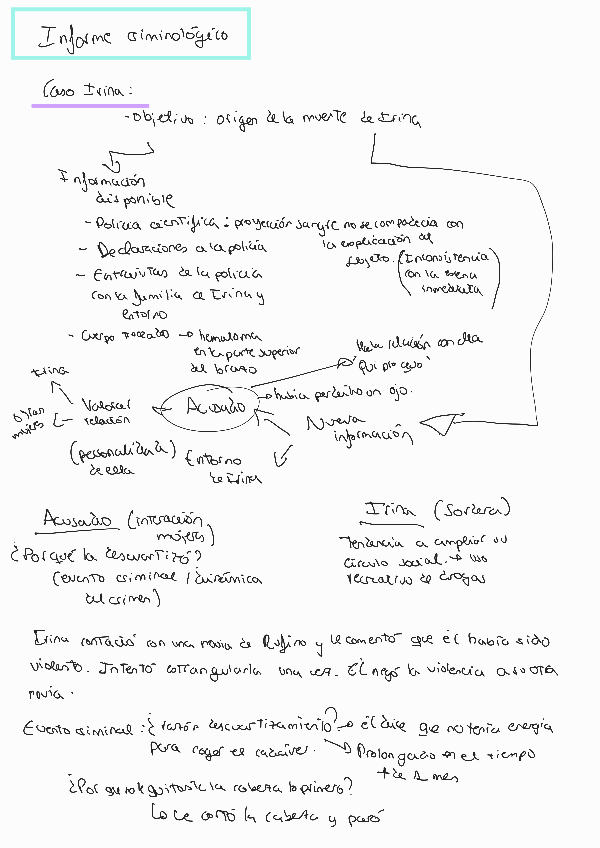 Informe criminológico
Caso Irina:
- objetivo: origen de la muerte de Irina
Información
disponible
- Policía científica: proyección sangre no se compadecía con
la explicación del
sujeto. (Inconsistencia
con la escena
inmediata)
- Declaraciones a la policía
- Entrevistas de la policía
con la familia de Irina y
entorno
- Cuerpo troceado → hematoma
en la parte superior
del brazo
relación con ella
había perdido un ojo.
Acusado
Valorar
relación
Irina
otras
mujeres
(personalidad)
de ella
Entorno
de Irina
Nueva
información
Acusado (interacción
mujeres)
¿Por qué la descuartizó?
(evento criminal / dinámica
del crimen)
Irina (sordera)
Tendencia a ampliar su
círculo social. → uso
recreativo de drogas
Irina contactó con una novia de Rufino y le comentó que él había sido
violento. Intentó estrangularla una vez. Él negó la violencia a su otra
novia.
Evento criminal: ¿razón descuartizamiento? → él dice que no tenía energía
para coger el cadáver. → Prolongado en el tiempo
+ de 1 mes
¿Por qué le quitaste la cabeza lo primero?
Le cortó la cabeza y paró